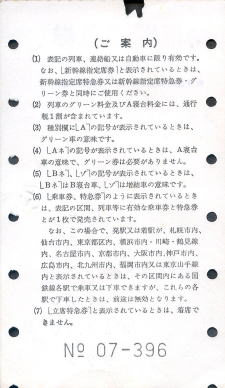 (ご案内)
(1) 表記の列車、連絡船又は自動車に限り有効です。
なお、〔新幹線指定席券〕と表示されているときは、
新幹線特急券又は新幹線指定席特急券・グ
リーン券と同時にご使用ください。
(2) 列車のグリーン料金及びA寝台料金には、通行
税1割が含まれています。
(3) 種別欄に〔A〕の記号が表示されているときは、
グリーン車の意味です。
(4) 〔Aネ〕の記号が表示されているときは、A寝台
車の意味で、グリーン券は必要がありません。
(5) 〔Bネ〕、〔ゾ〕の記号が表示されているときは、
〔Bネ〕はB寝台車、〔ゾ〕は増結車の意味です。
(6) 〔乗車券、特急券〕のように表示されているとき
は、表記の区間、列車等に有効な乗車券と特急券
とが1枚で発売されています。
なお、この場合で、発駅又は着駅が、札幌市内、
仙台市内、東京都区内、横浜市内・川崎・鶴見線
内、名古屋市内、京都市内、大阪市内、神戸市内、
広島市内、北九州市内、福岡市内又は東京山手線
内と表示されているときは、その区間内にある国
鉄線各駅で乗車又は下車できますが、これらの各
駅で下車したときは、前途は無効となります。
(7) 〔立席特急券〕と表示されているときは、着席で
きません。
№ 07-396